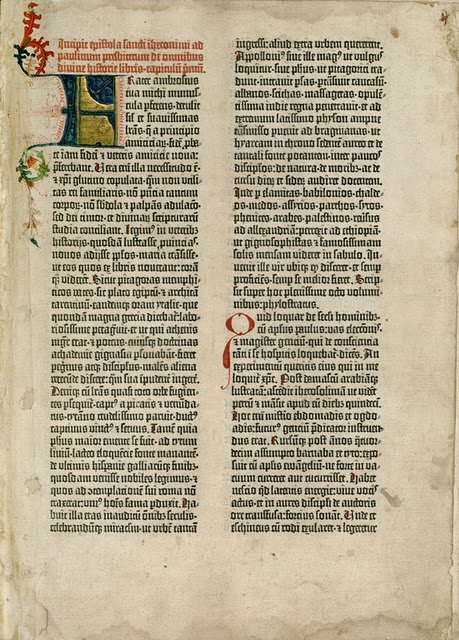 Incipit epistola sancti iheronimi ad
paulinum presbiterum de omnibus
divine historie libris · capitulum primū.
Frater ambrosius
tua michi munus-
cula pferens · detulit
sil et suavissimas
lrās · q̄ a principio
amiciciaꝝ · fidē pba-
te iam fidei et veteris amicicie nova:
pferebant. Vera eni illa necessitudo ē ·
et xp̄i glutino copulata: qm̄ non utili-
tas rei familiaris · nō pn̄cia tantum
corpoꝝ · nō sbdola et palpās adulaco:
sed dei timor · et divinaꝝ scripturarū
studia conciliant. Legim⁹ in veterib⁹
historijs · quosdā lustrasse puīcias ·
novos adijsse pplos · maria trāsisse ·
ut eos quos ex libris noverant: corā
qꝫ viderēt. Sicut pitagoras memphi-
ticos vates · sic plato egiptū · et architā
tarentinū · eandemqꝫ oram ytalie · que
quondā magna grecia dicebat̄: labo-
riosissime peragvit: ut qui athenis
mgr̄ erat · et potens · cuiusqꝫ doctrinas
achademie gignasia psonabāt: fieret
peregrin⁹ atqꝫ discipulus · malēs aliena
verecūde discere: qm̄ sua īpudent̄ ingere.
Deniqꝫ cū lrās quasi toto orbe fugien-
tes psequit̄ · capt⁹ a piratis et venunda-
tus · tyrāno crudelissimo paruit · duct⁹
captivus vinct⁹ et servus. Tamē quia
phūs maior emente se fuit · ad tytum
liviū · lacteo eloquētie fonte manantē ·
de ultimis hispanie galliarūqꝫ finib⁹ ·
quosdam venisse nobiles legimus: et
quos ad ɔtemplaconē sui roma nō
traxerat: unī⁹ hoīs fama pduxit. Ha-
buit illa etas inauditū om̄ib⁹ seculis ·
celebrandūqꝫ miraclm̄ · ut urbē tantā
ingressi: aliud extra urbem quererent.
Appolloni⁹ sive ille mag⁹ ut vulgus
loquitur · sive phūs · ut pitagorici tra-
dunt · intravit psas · ptrāsivit caucasū ·
albanos · scithas · massagetas · opulē-
tissima indie regna penetravit: et ad
extremum latissimo physon ampne
trāsmisso puenit ad bragmanas · ut
hyarcam in throno sedentē aureo et de
tantali fonte potantem · inter paucos
discipulos · de natura · de moribus · ac de
cursu dierū et siderū audiret docentem.
Inde p elamitas · babilonios · chalde-
os · medos · assyrios · parthos · syros ·
phenices · arabes · palestinos · reūsus
ad allexandriā: prexit ad ethiopiā ·
ut gignosophistas et famosissimam
solis mensam videret in sabulo. In-
venit ille vir ubiqꝫ qd̄ disceret: et semp
proficiēs · semp se melior fieret. Scrip-
sit super hoc plenissime octo volumi-
nibus: phylostratus.
Quid loquar de seculi hominib⁹:
cū aplūs paulus: vas electōis ·
et magister gentiū · qui de consciencia
tanti i se hospicis loquebat̄ · dicēs. An
experimentū queritis eius qui in me
loquit̄ xp̄c. Post damascū arabiāqꝫ
lustratā: ascēdit iherosolimā ut videret
petrū et māsit apud eū dieb⁹ quindeci.
Hoc eni mistio ebdomadis et ogdo-
adis: futur⁹ genciū pdicator instruen-
dus erat. Rursūqꝫ post ānos q̄tuor-
decim assumpto barnaba et tyto: expo-
suit cū aplīs ewangeliū · ne forte in va-
cuum curreret aut cucurrisset. Habet
nescio qd̄ latentis energie: vive vocis
actus · et in aures discipli de auctoris
ore transfusa: forcius sonat. Unde et
eschineus cū rodi exularet · et legeretur